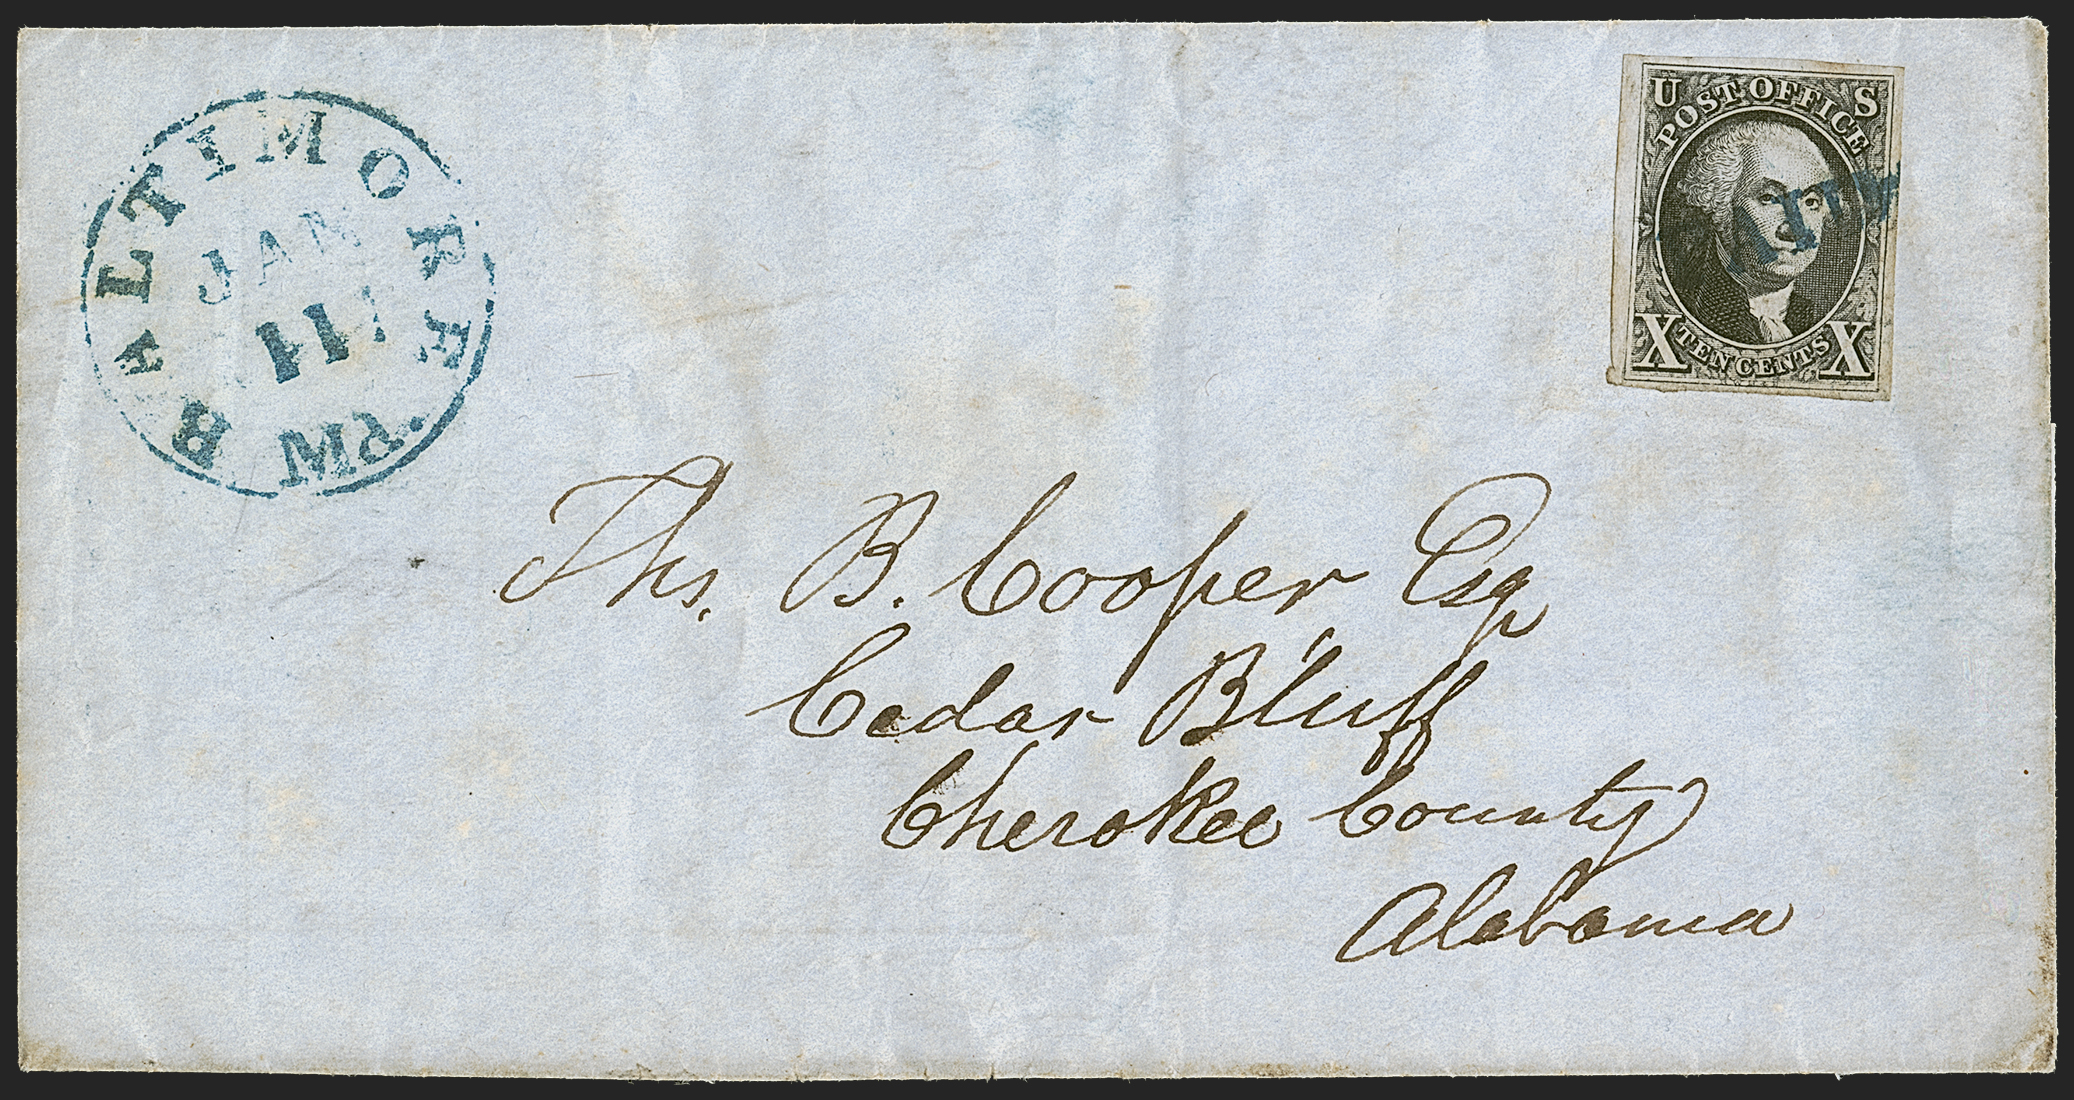 BALTIMORE Md.
JAN
11
U S
POST OFFICE
X TEN CENTS X
Ths. B. Cooper Esq
Cedar Bluff
Cherokee County
Alabama